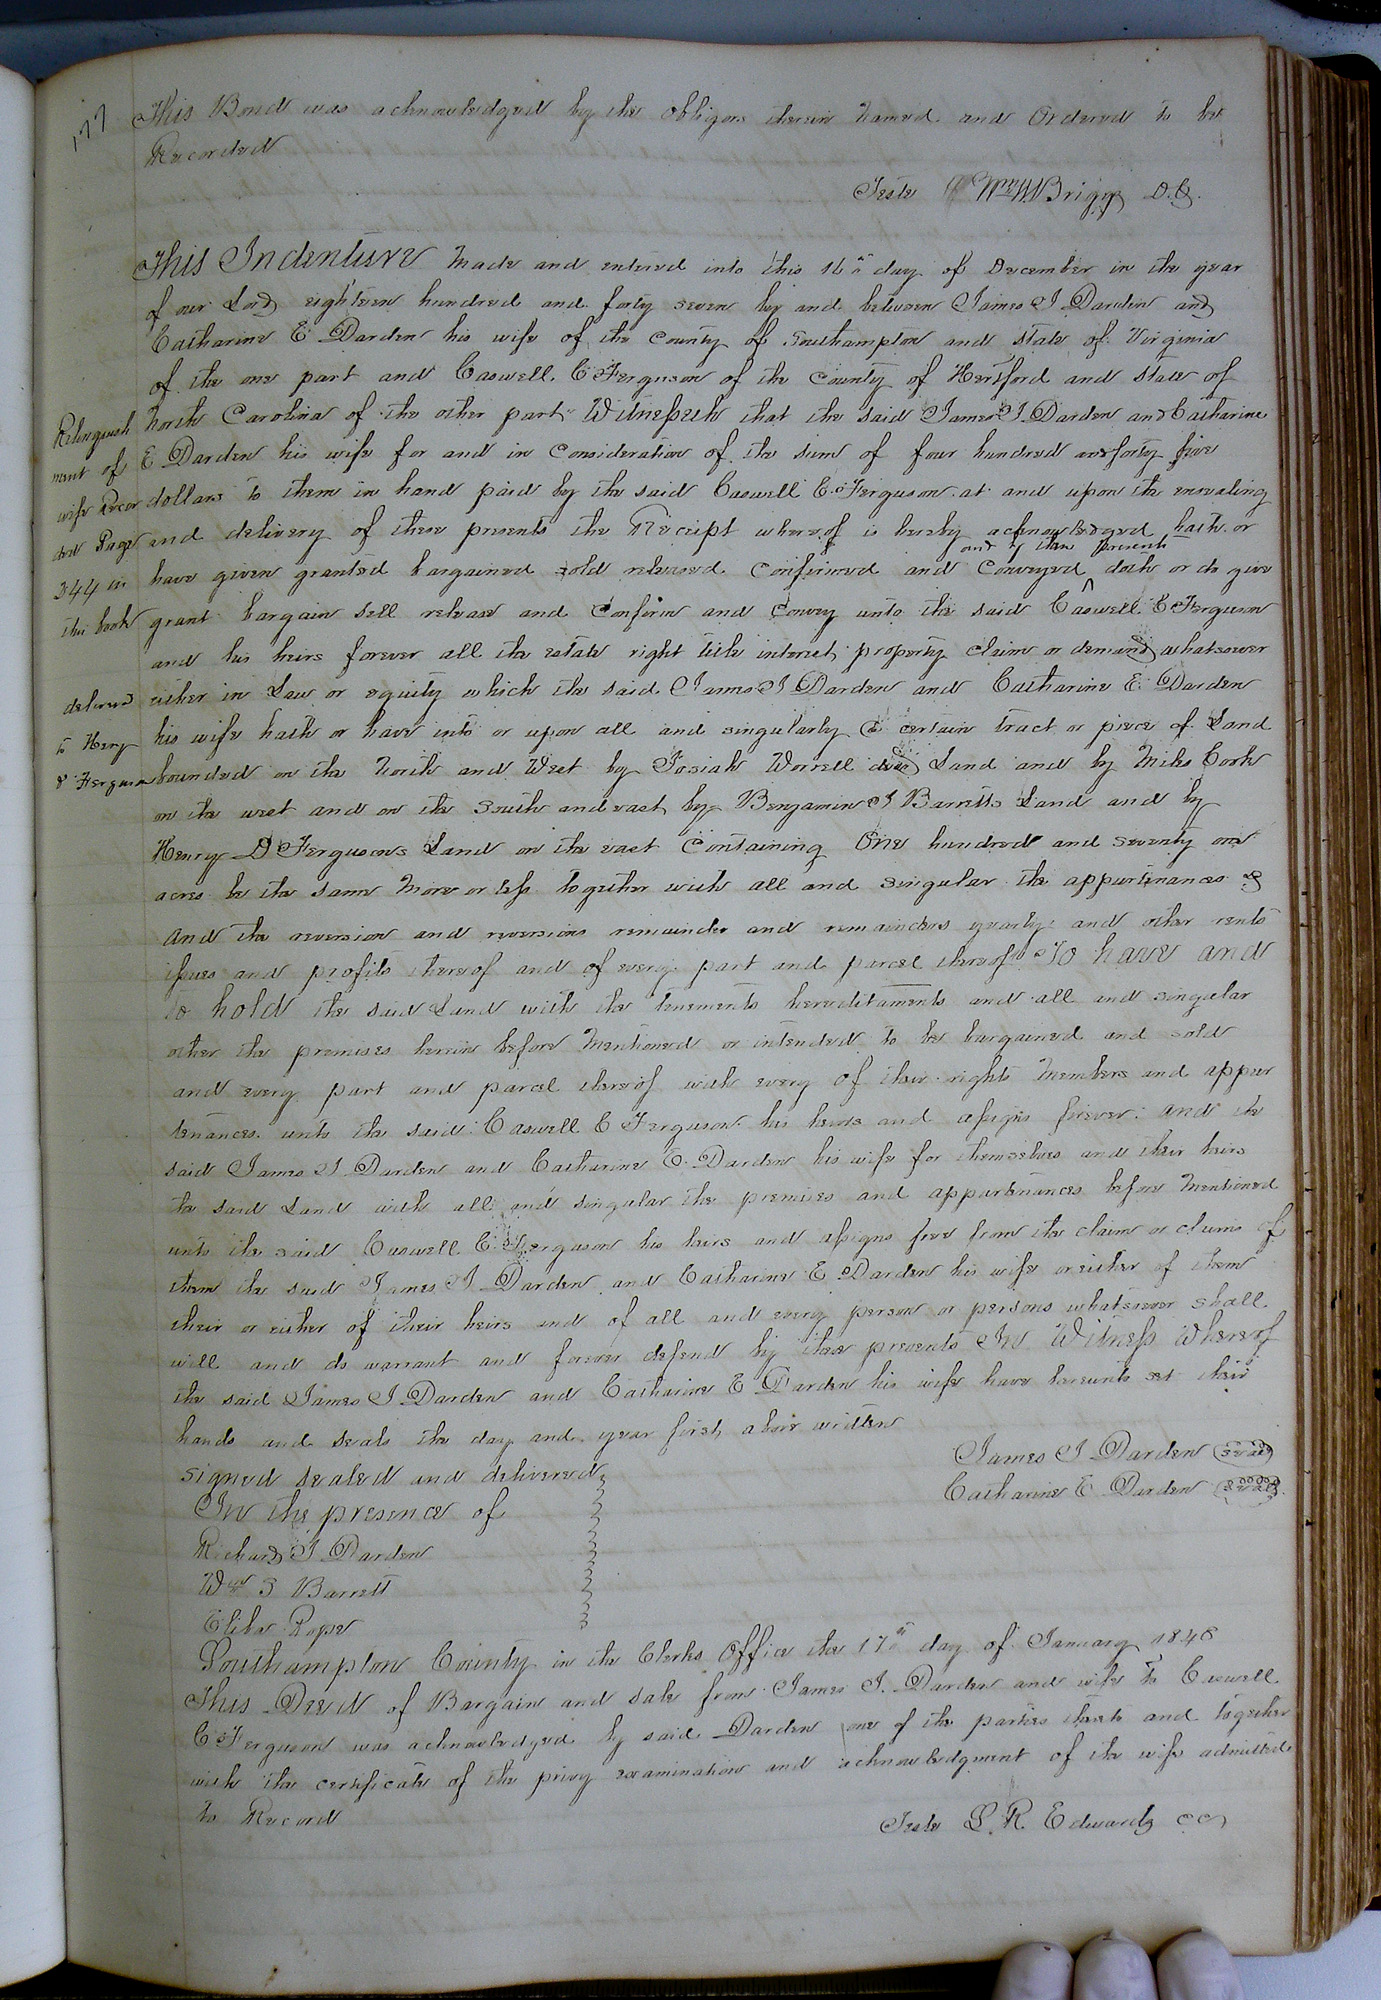 177
This Bond was acknowledged by the obligors therein named and Ordered to be
Recorded
Teste Wm H Briggs D.C.
This Indenture made and entered into this 16th day of December in the year
of our Lord eighteen hundred and forty seven by and between James J Darden and
Catharine E Darden his wife of the County of Southampton and State of Virginia
of the one part and Caswell C Ferguson of the County of Hertford and State of
North Carolina of the other part Witnesseth that the said James J Darden and Catharine
E Darden his wife for and in Consideration of the sum of four hundred and forty five
dollars to them in hand paid by the said Caswell C Ferguson at and upon the ensealing
and delivery of these presents the Receipt whereof is hereby acknowledged hath or
and by these presents
have given granted bargained sold released Confirmed and Conveyed doth or do give
grant bargain sell release and Confirm and Convey unto the said Caswell C Ferguson
and his heirs forever all the estate right title interest property claim or demand whatsoever
either in Law or equity which the said James J Darden and Catharine E Darden
his wife hath or have into or upon all and singularly a certain tract or piece of Land
bounded on the North and West by Josiah Worrell decd Land and by Miles Cook
on the west and on the South and east by Benjamin J Barretts Land and by
Henry D Fergusons Land on the east Containing One hundred and seventy one
acres be the same more or less together with all and singular the appurtenances &
And the reversion and reversions remainder and remainders yearly and other rents
issues and profits thereof and of every part and parcel thereof To have and
to hold the said Land with the tenements hereditaments and all and singular
other the premises herein before mentioned or intended to be bargained and sold
and every part and parcel thereof with every of their rights members and appur
tenances unto the said Caswell C Ferguson his heirs and assigns forever. And the
said James J Darden and Catharine E. Darden his wife for themselves and their heirs
the said Land with all and singular the premises and appurtenances before mentioned
unto the said Caswell C Ferguson his heirs and assigns free from the claim or claims of
them the said James J Darden and Catharine E Darden his wife or either of them
their or either of their heirs and of all and every person or persons whatsoever shall
will and do warrant and forever defend by these presents In Witness Whereof
the said James J Darden and Catharine E Darden his wife have hereunto set their
hands and seals the day and year first above written
James J Darden Seal
Catharine E Darden Seal
Signed Sealed and delivered
In the presence of
Richard J Darden
Wm S Barrett
Roper
Southampton County in the Clerks Office the 17th day of January 1848
This Deed of Bargain and Sale from James J. Darden and wife to Caswell
C Ferguson was acknowledged by said Darden one of the parties thereto and together
with the certificate of the privy examination and acknowledgment of the wife admitted
to Record
Teste L. R. Edwards CC
Relinquish
ment of
wife Recor
ded Page
344 in
this book
delivered
to Henry
D Ferguson